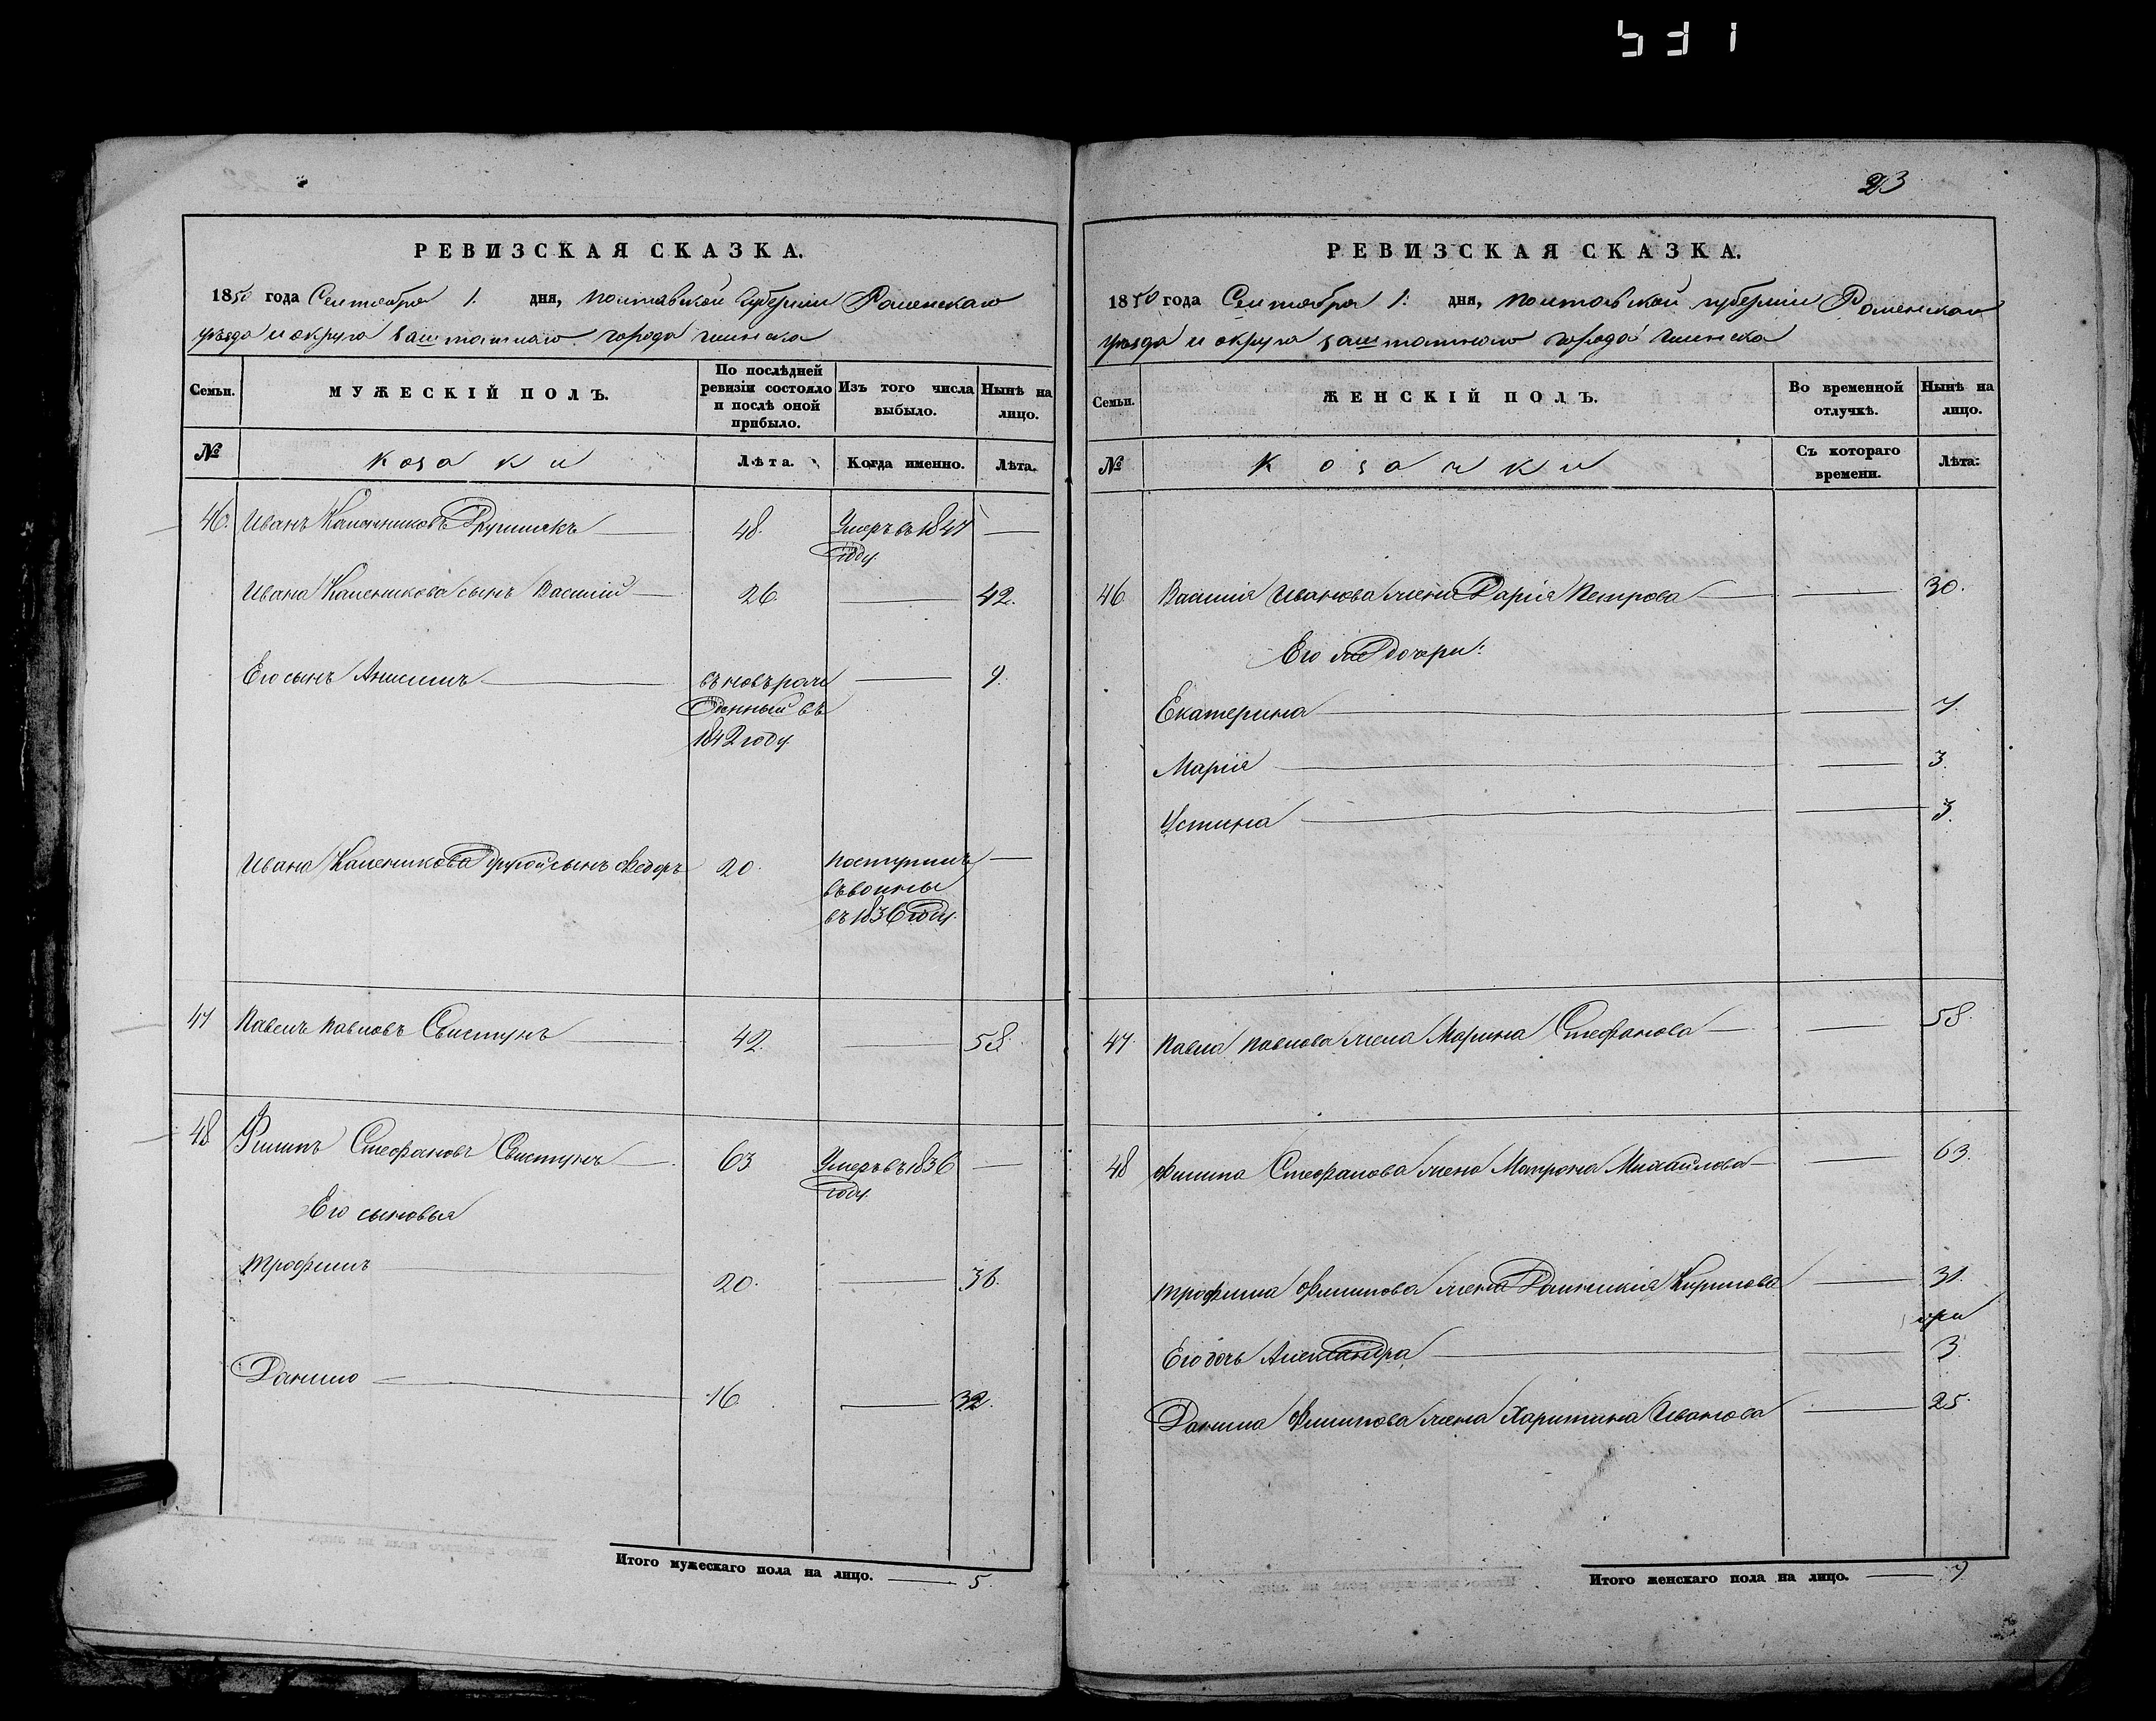 531
РЕВИЗСКАЯ СКАЗКА.
1850 года Сентября 1. дня, Полтавской губернiи Роменскаго
уѣзда и округа заштатнаго города Глинска
Семьи.
МУЖЕСКІЙ ПОЛЪ.
По послѣдней ревизіи состояло и послѣ оной прибыло.
Изъ того числа выбыло.
Нынѣ на лицо.
№
козаки
Лѣта.
Когда именно.
Лѣта.
46. Иванъ Калениковъ 48. Умеръ въ 1847 году. —
Ивана Каленикова сынъ Василій — 26 — 42.
Его сынъ Анисимъ — въ новъ рож — 9.
денный въ
1842 году.
Ивана Каленикова другой сынъ Федоръ 20. поступилъ —
въ воины
въ 1836 году.
47 Павелъ Павловъ Свистунъ — 42. — 58.
48 Филипъ Стефановъ Свистунъ — 63 Умеръ въ 1836 —
году.
Его сыновья
Трофимъ — 20. — 36.
Данило — 16. — 32.
Итого мужескаго пола на лицо. — 5.
23
РЕВИЗСКАЯ СКАЗКА.
1850 года Сентября 1. дня, Полтавской губернiи Роменскаго
уѣзда и округа заштатнаго города Глинска
Семьи.
ЖЕНСКІЙ ПОЛЪ.
Во временной отлучкѣ.
Нынѣ на лицо.
№
козачки
Съ котораго времени.
Лѣта.
46 Василія Иванова жена Дарія Петрова — — 30.
Его дочери:
Екатерина — — 7.
Марія — — 3.
Устина — — 3.
47. Павла Павлова жена Марина Стефанова — — 58.
48 Филипа Стефанова жена Матрона Михайлова — — 63.
Трофима Филипова жена Кирилова — 31.
три
Его дочь Александра — — 3
Данила Филипова жена Харитина Иванова — 25.
Итого женскаго пола на лицо. — 9